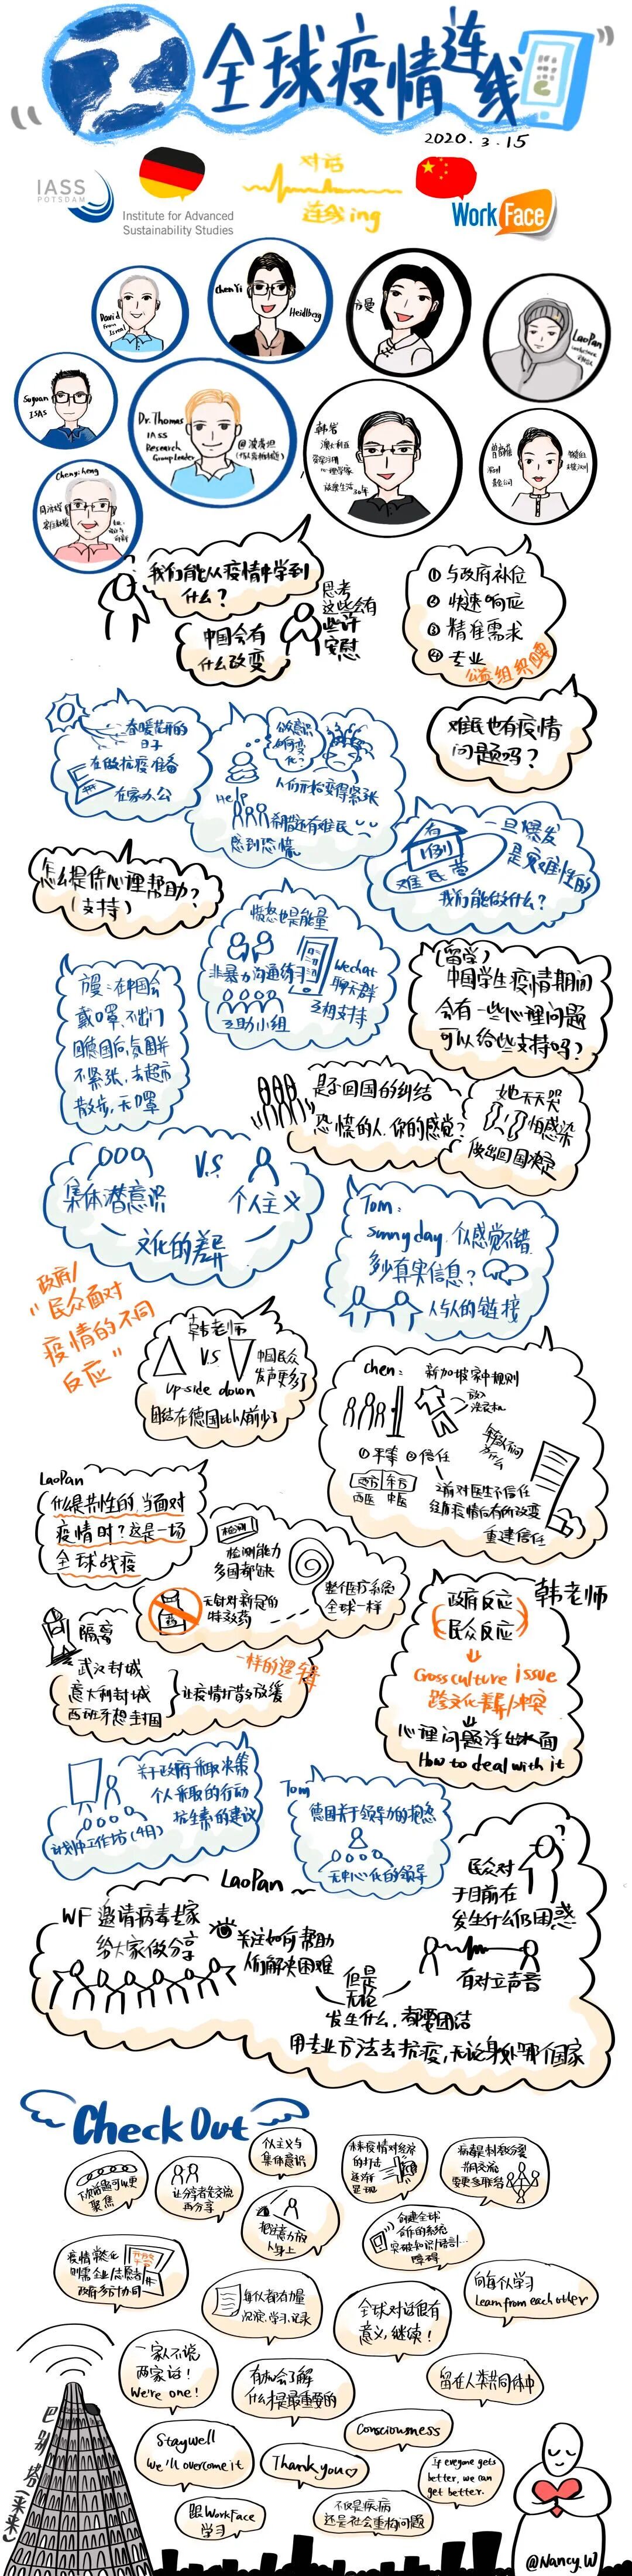 全球疫情连线
2020.3.15
IASS
POTSDAM
Institute for Advanced
Sustainability Studies
对话
连线ing
Work Face
David
from
Israel
ChenYi
Heidlberg
方曼
LaoPan
Suguan
ISAS
Dr. Thomas
IASS
Research
Group leader
@波茨坦
韩老师
澳大利亚
心理学家
旅居生活30年
Chengiheng
我们能从疫情中学到
什么?
中国会有
什么改变
思考
这些会有
些许
安慰
① 与政府补位
② 快速响应
③ 精准需求
④ 专业
公益组织
难民也有疫情
问题吗?
春暖花开的
日子
在做抗疫准备
在家办公
公众意识
如何变
化?
人们开始变得紧张
Help
希腊还有难民
感到恐慌
有
1例
难民营
一旦爆发
是灾难性的
我们能做什么?
怎么提供心理帮助?
(支持)
愤怒也是能量
非暴力沟通练习
互助小组
Wechat
聊天群
互相支持
(留学)
中国学生疫情期间
会有一些心理问题
可以给些支持吗?
方曼:在中国会
戴口罩,不出门
回德国后,氛围并
不紧张,去超市
散步,无口罩
是否回国的纠结
恐慌的人,你的感觉?
她天天哭
怕感染
做出回国决定
集体潜意识
V.S
个人主义
文化的差异
Tom:
sunny day, 个人感觉不错
多少真果信息?
人与人的链接
政府/
"民众面对
疫情的不同
反应"
韩老师
V.S
up side down
中国民众
发声更多了
团结在德国比以前少了
chen:
新加坡家中规则
放入
洗衣机
①平等 ②信任
西方 东方
西医 中医
之前对医生不信任
经历疫情后有所改变
重建信任
LaoPan
什么是共性的,当面对
疫情时?这是一场
全球战疫
检测
检测能力
多国都缺
无针对新冠的
特效药
整个医疗系统
全球一样
一样的逻辑
隔离
武汉封城
意大利封城
西班牙想封国
让疫情扩散放缓
韩老师
政府反应
民众反应
Cross culture issue
跨文化差异/冲突
心理问题浮出水面
How to deal with it
关于政府采取决策
个人采取的行动
抗生素的建议
计划中工作坊(4月)
Tom
德国关于领导力的概念
无中心化的领导
LaoPan
WF 邀请病毒专家
给大家做分享
关注如何帮助
人们解决困难
民众对
于目前在
发生什么仍困惑
有对立声音
但是
无论
发生什么,都要团结
用专业方法去抗疫,无论身处哪个国家
Check Out
下次话题可以更
聚焦
让分享者先交流
再分享
个人主义与
集体意识
把注意力放
人身上
未来疫情对经济
的打击
逐渐
显现
共同交流
要更多联结
创建全球
合作的系统
突破知识/语言...
障碍
疫情常态化
则需企业/志愿者
政府多方协同
每个人都有力量
沉淀、学习、记录
全球对话很有
意义,继续!
向每个人学习
Learn from each other
一家人不说
两家话!
We're one!
有机会了解
什么才是最重要的
留在人类共同体中
Stay well
We'll overcome it
Consciousness
Thank you
If everyone gets
better, we can
get better.
跟WorkFace
学习
不仅是疾病
还是社会重构问题
巴别塔(未来)
@Nancy.W